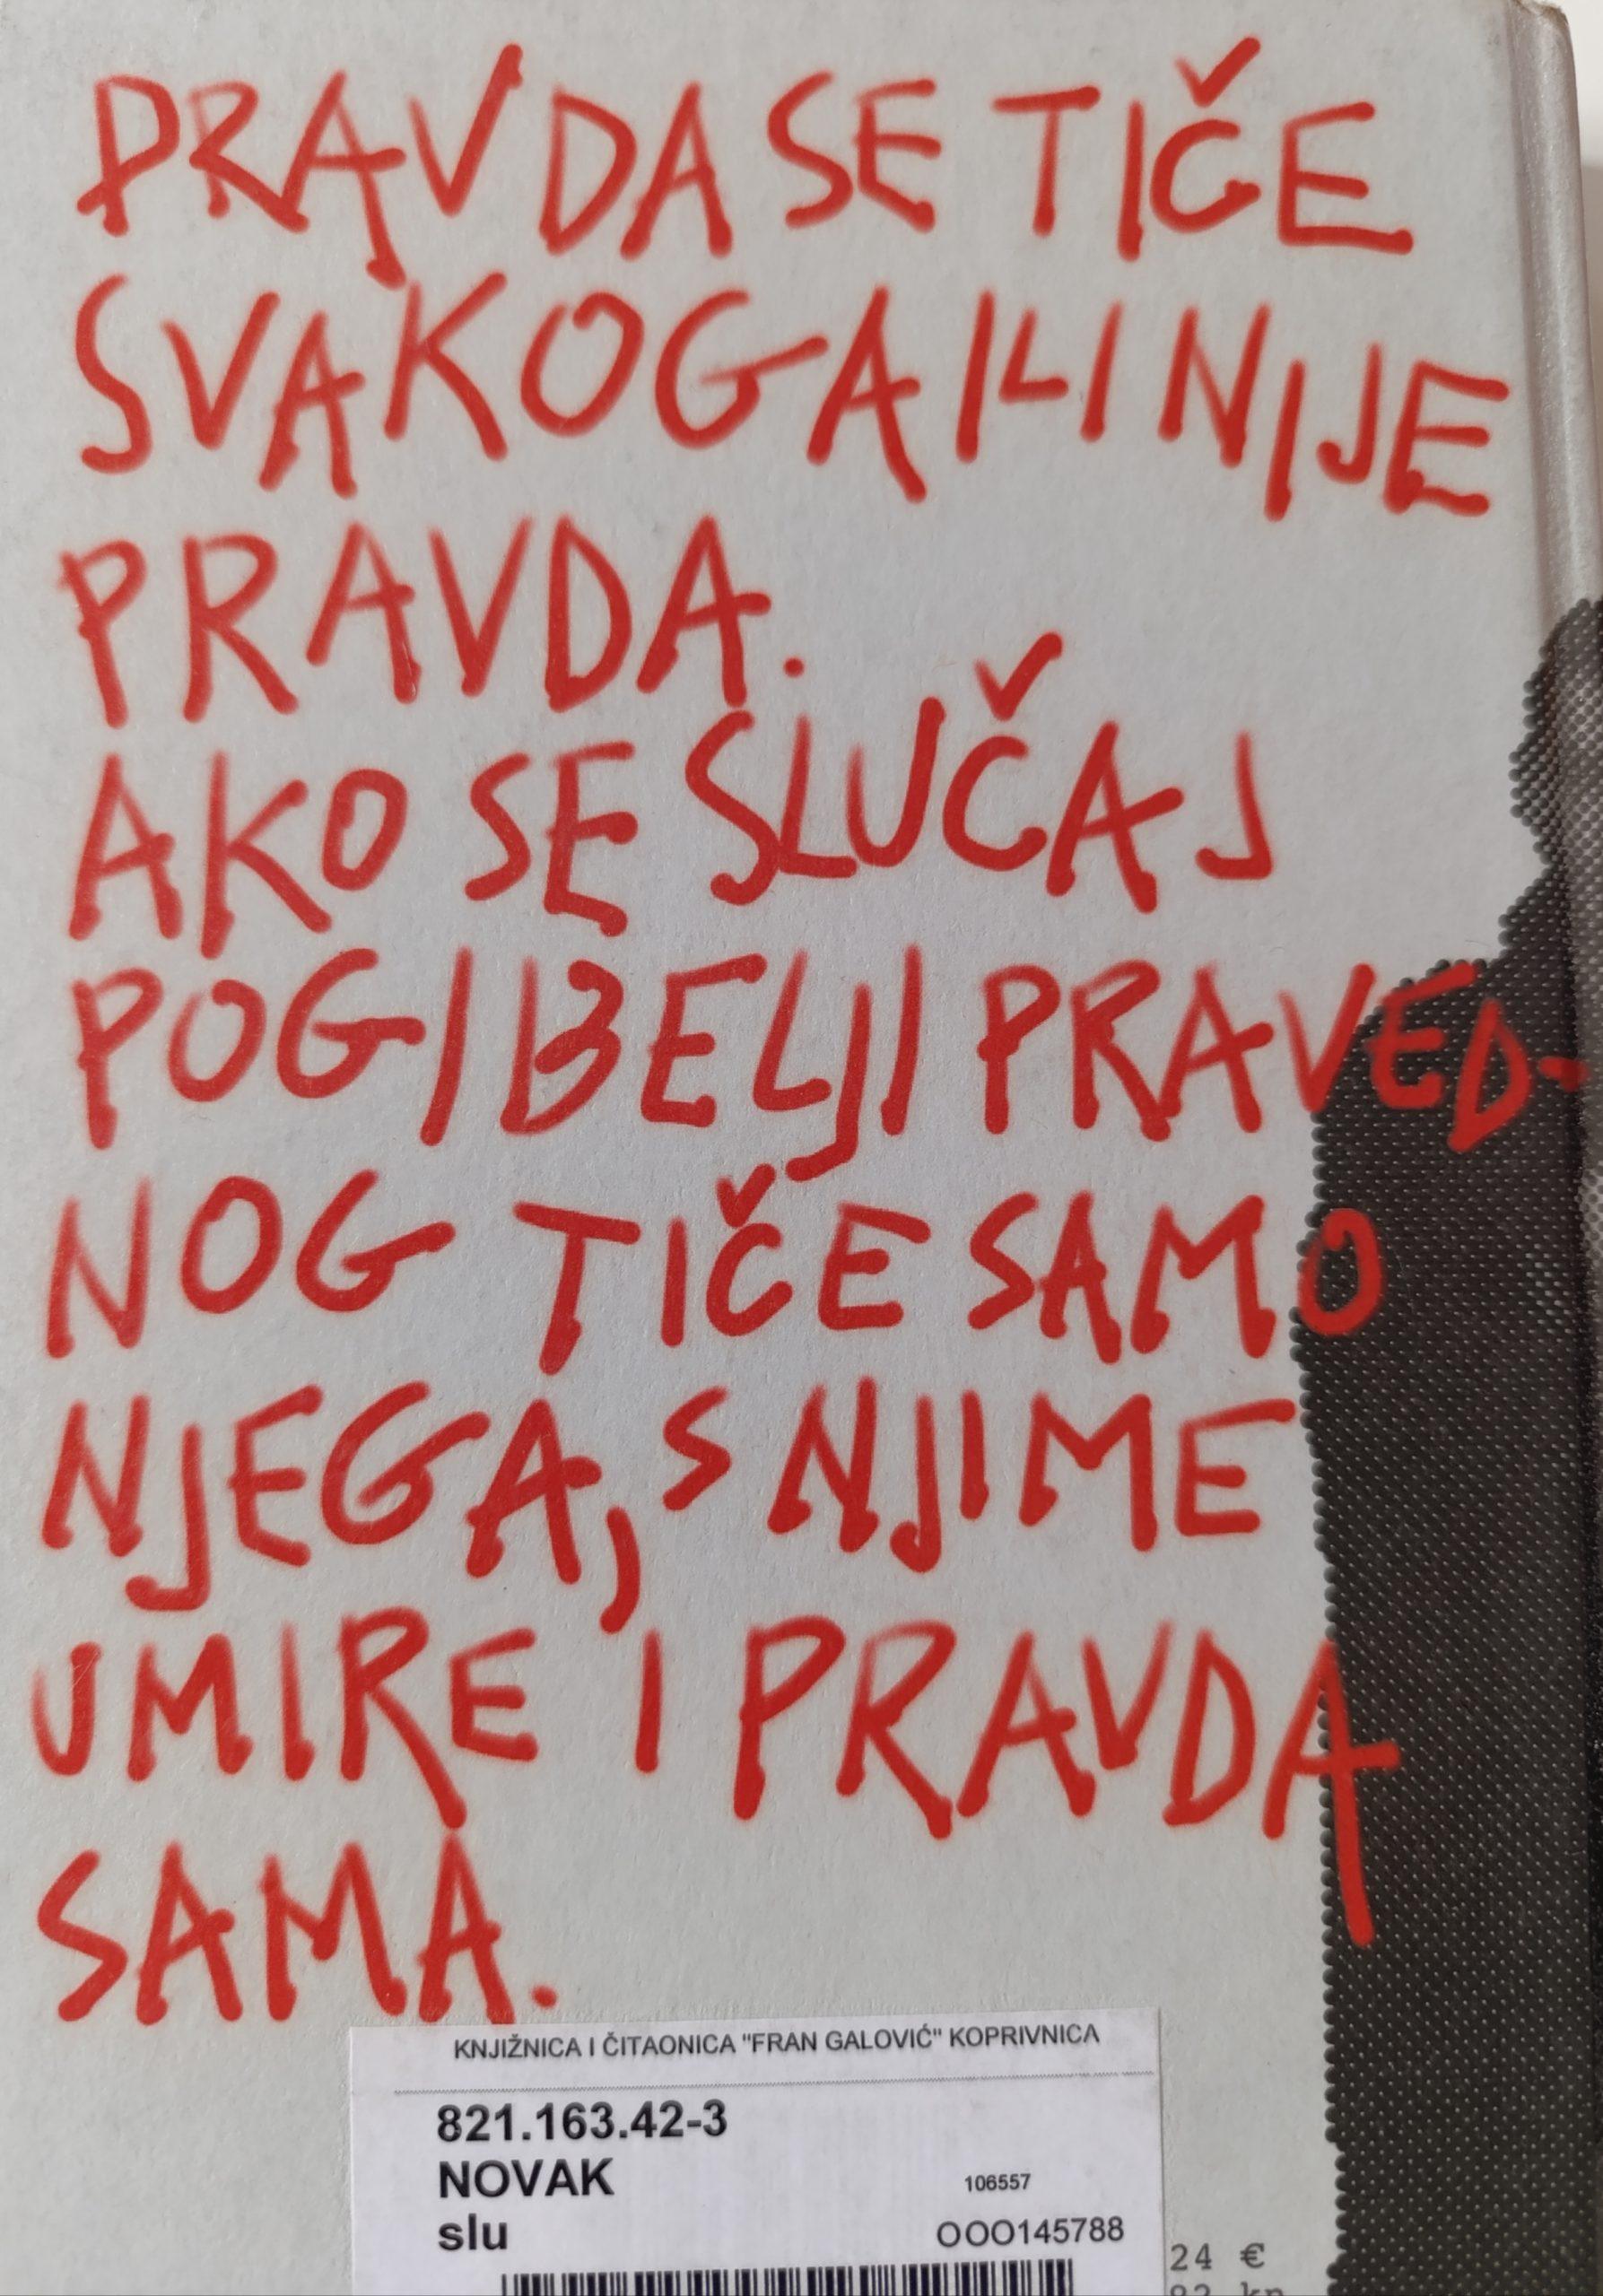 PRAVDA SE TIČE
SVAKOGA ILI NIJE
PRAVDA.
AKO SE SLUČAJ
POGIBELJI PRAVED-
NOG TIČE SAMO
NJEGA, S NJIME
UMIRE I PRAVDA
SAMA.
KNJIŽNICA I ČITAONICA "FRAN GALOVIĆ" KOPRIVNICA
821.163.42-3
NOVAK
106557
slu
OOO145788
24 €